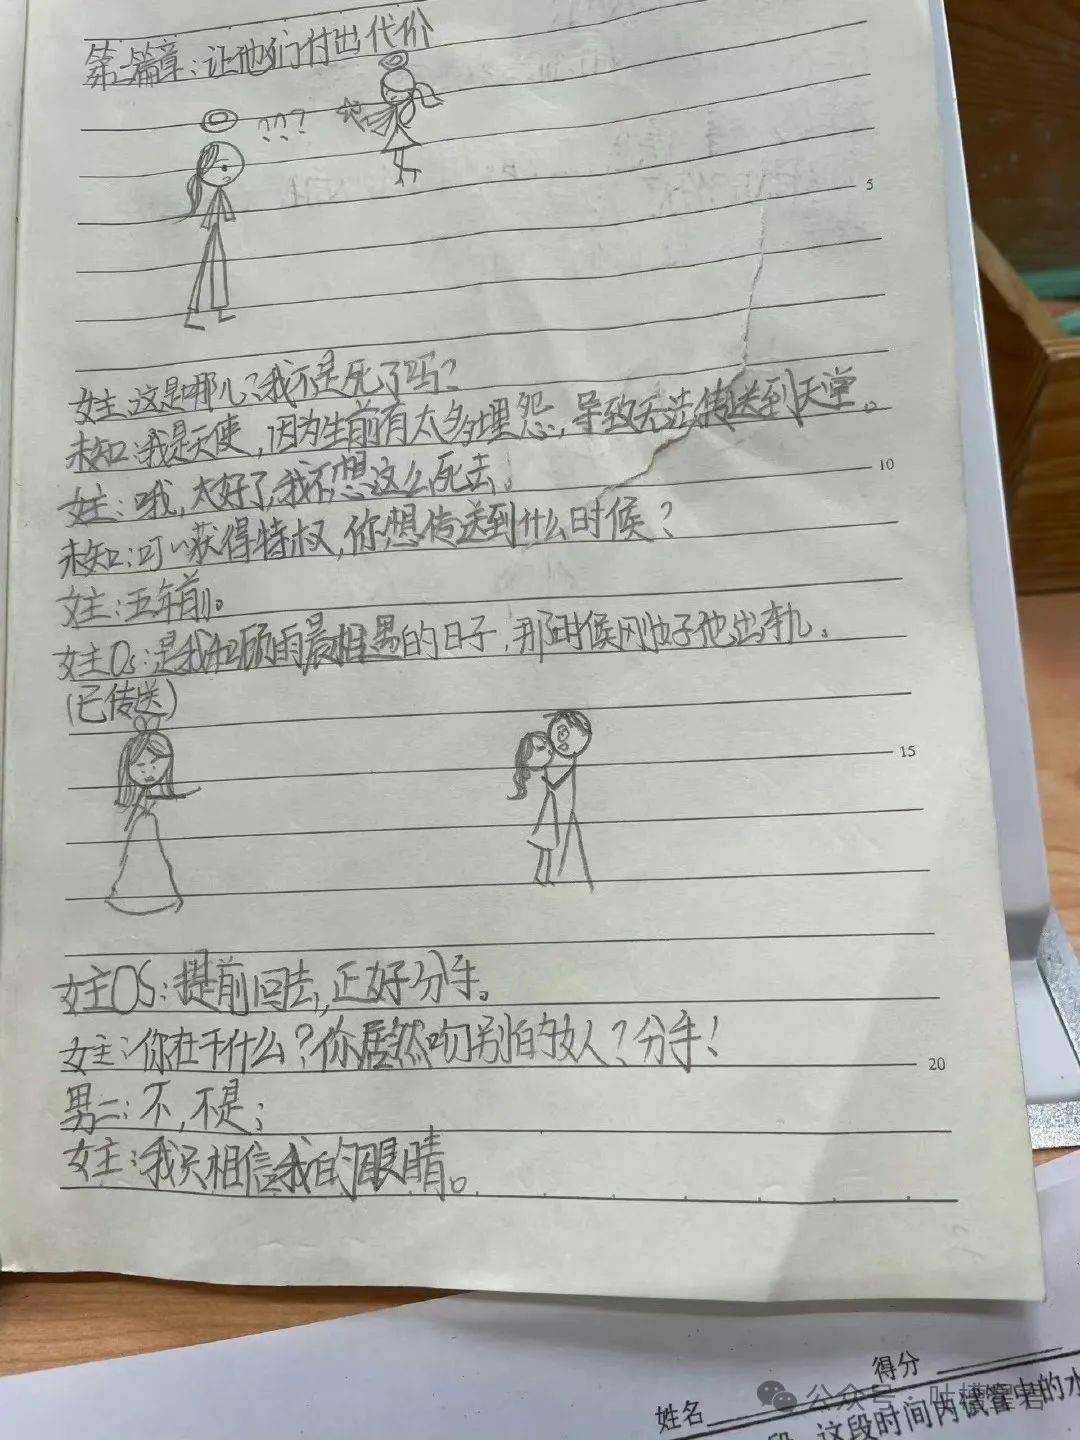 第二篇章：让他们付出代价
???
5
女主:这是哪儿？我不是死了吗？
未知:我是天使，因为生前有太多埋怨，导致无法传送到天堂。
女主：哦，太好了,我不想这么死去。
10
未知:叮~获得特权,你想传送到什么时候？
女主：五年前。
女主Os:是我和顾雨晨相遇的日子，那时候刚好他出轨。
(已传送)
15
女主OS:提前回去,正好分手。
女主:你在干什么？你居然吻别的女人？分手！
20
男二:不,不是;
女主:我只相信我的眼睛。
得分
姓名
公众号
这段时间内
的水